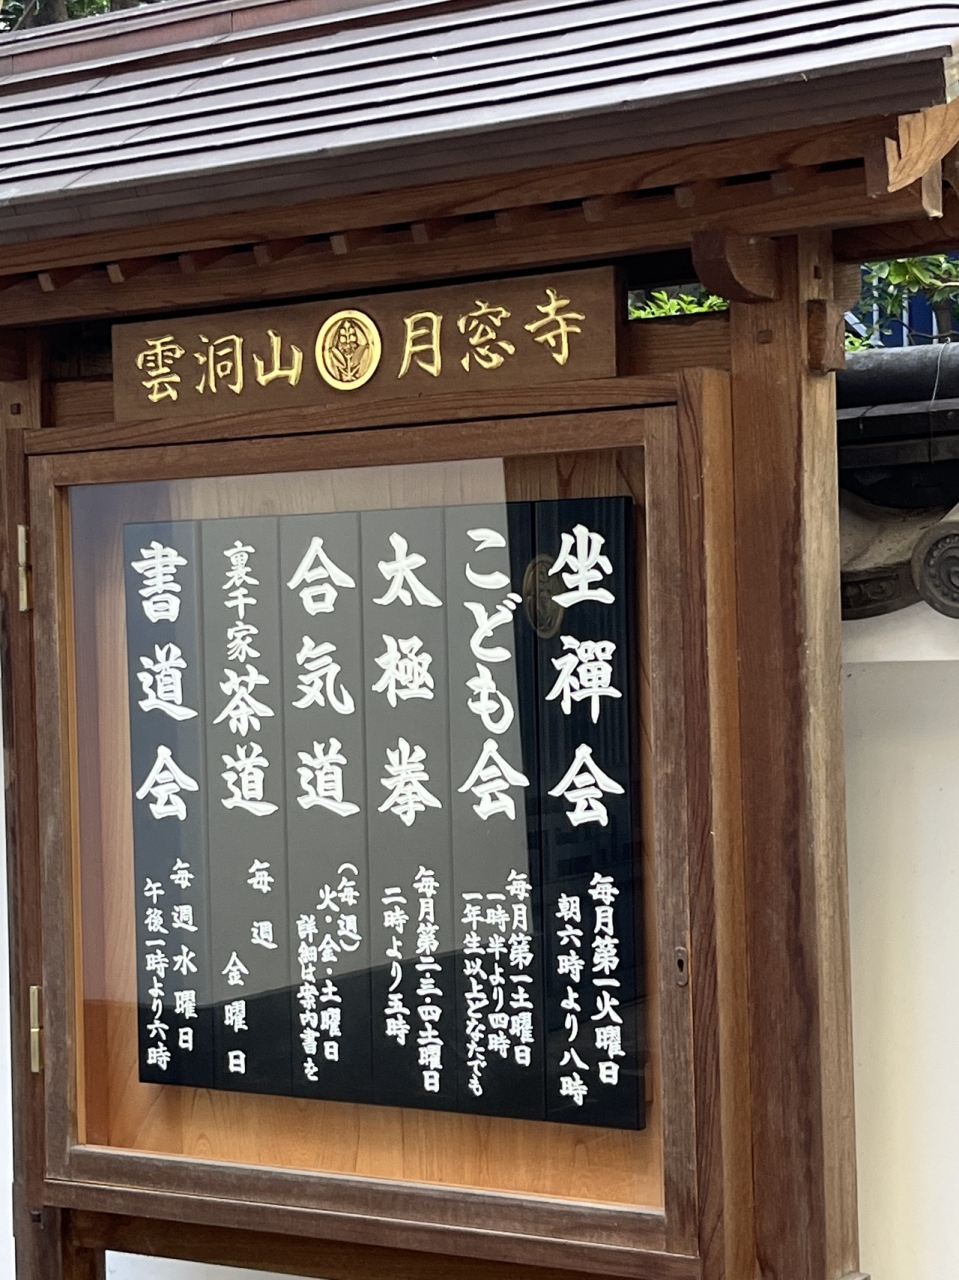 雲洞山 月窓寺
坐禪会
毎月第一火曜日
朝六時より八時
こども会
毎月第一土曜日
一時半より四時
一年生以上どなたでも
太極拳
毎月第二・三・四土曜日
二時より五時
合気道
(毎週)
火・金・土曜日
詳細は案内書を
裏千家茶道
毎週
金曜日
書道会
毎週水曜日
午後一時より六時